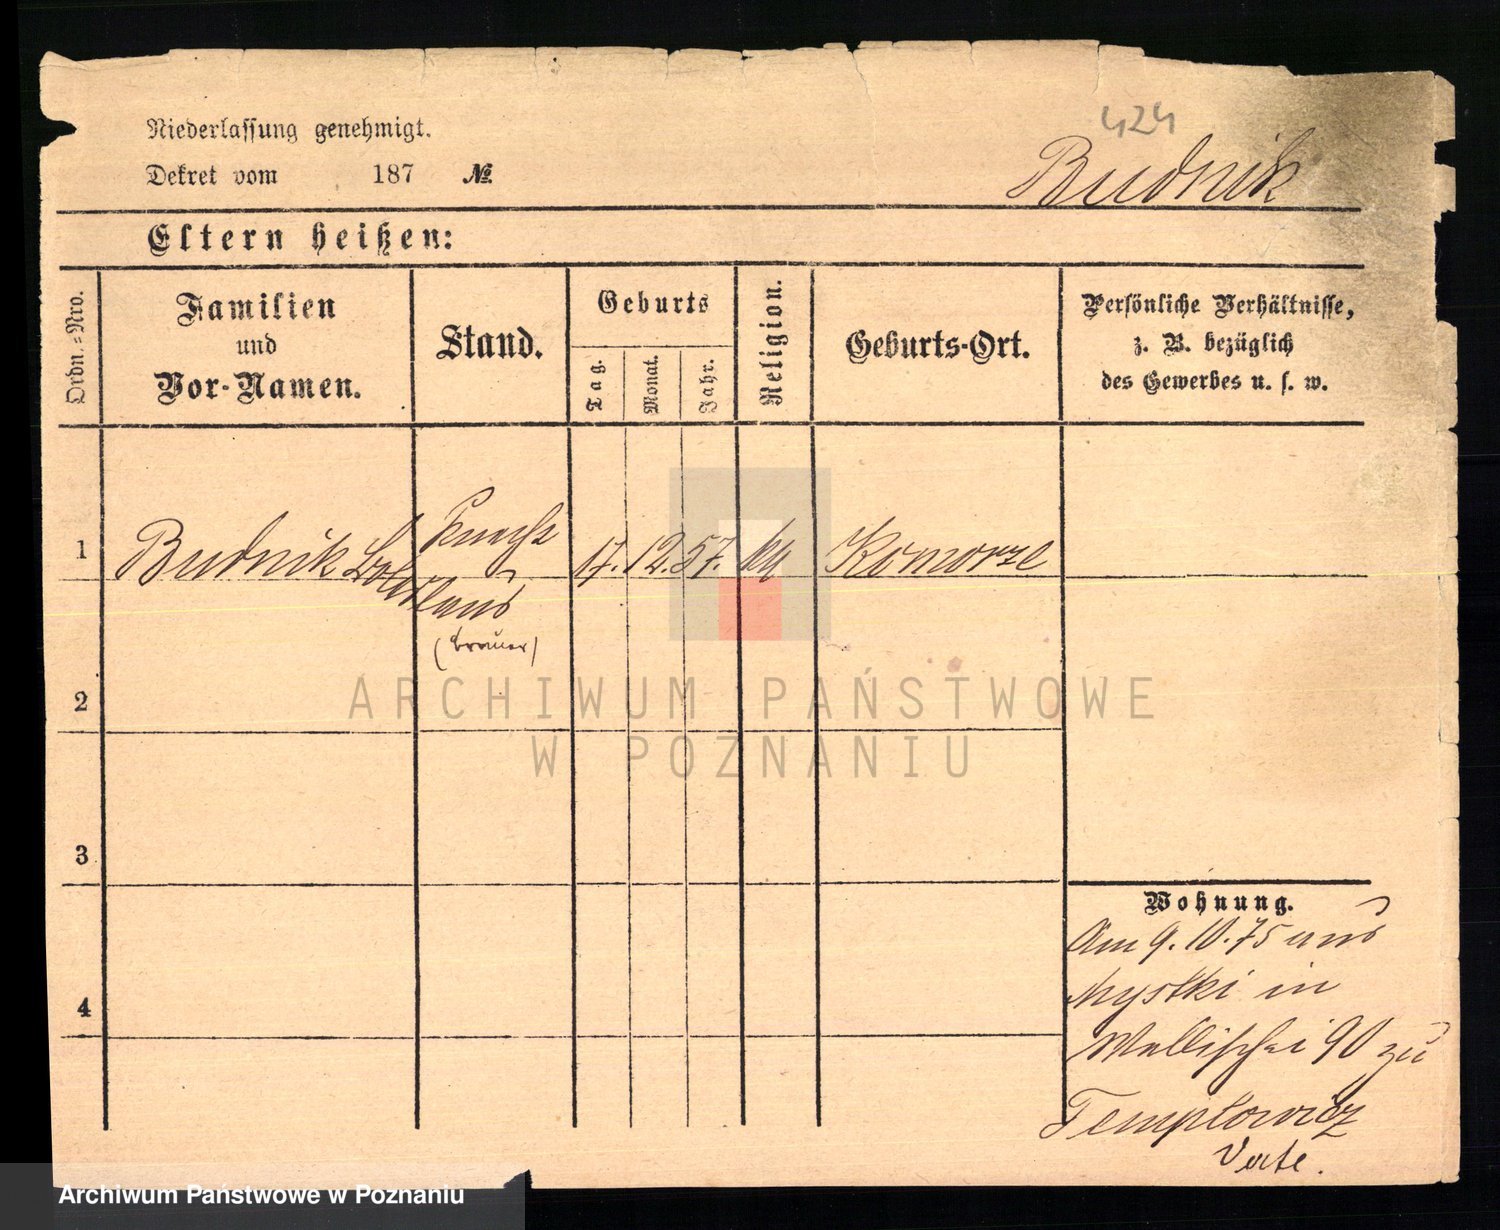 424
Niederlassung genehmigt.
Dekret vom 187 №
Budnik
Eltern heißen:
Ordn.=Nro.
Familien
und
Vor-Namen.
Stand.
Geburts
Tag.
Monat.
Jahr.
Religion.
Geburts-Ort.
Persönliche Verhältnisse,
z. B. bezüglich
des Gewerbes u. s. w.
1 Budnik Knecht 17. 12. 57. Komorze
(Brauer)
2
3
4
Wohnung.
Am 9. 10. 75 aus
Myszki in
Wallischei 90 zu
Templowicz
Verte.
ARCHIWUM PAŃSTWOWE
W POZNANIU
Archiwum Państwowe w Poznaniu